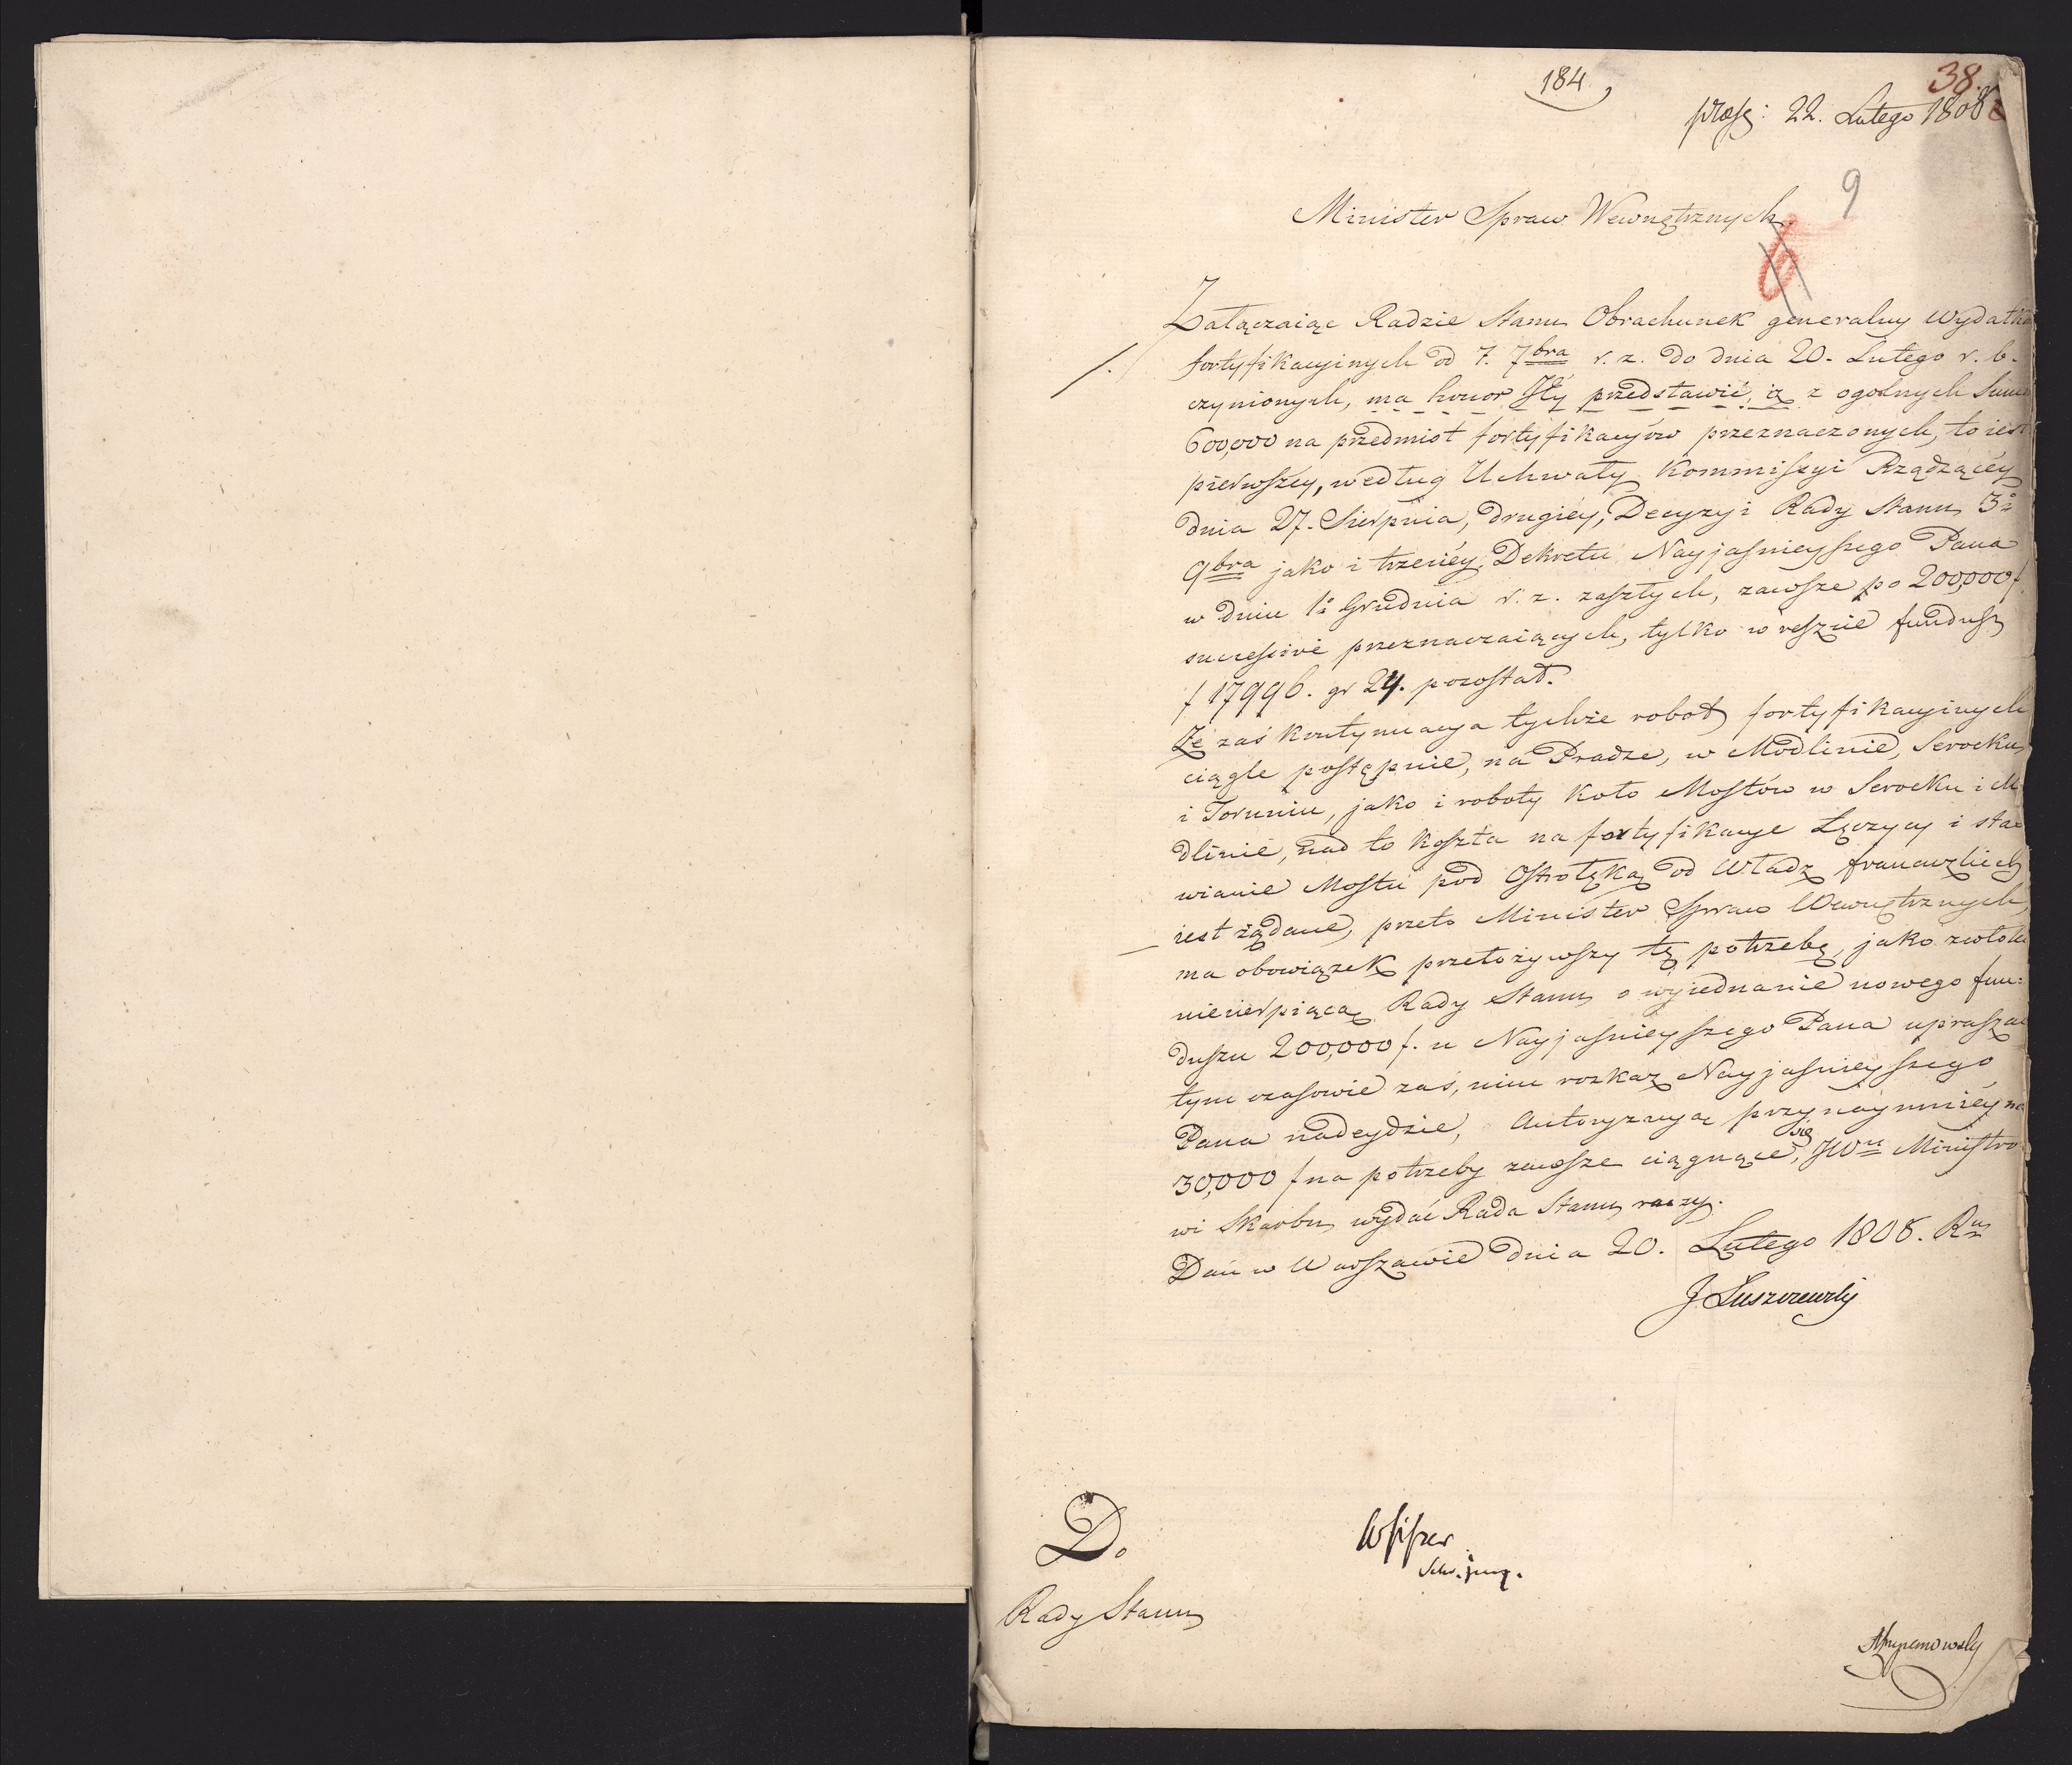 184
38.
præs: 22. Lutego 1808
9
Minister Spraw Wewnętrznych.
6
Załączaiąc Radzie Stanu Obrachunek generalny wydatków
fortyfikacyinych od 7. 7bra r. z. do dnia 20. Lutego r. b.
czynionych, ma honor Jéy przedstawić, iż z ogolnych Summ
600,000 na przedmiot fortyfikacyów przeznaczonych, to iest
pierwszey, według Uchwały Kommissyi Rządzącéy
dnia 27. Sierpnia, drugiéy, Decyzyi Rady Stanu 3º
9bra jako i trzeciéy, Dekretu Nayjasnieyszego Pana
w dniu 1º Grudnia r. z. zaszłych, zawsze po 200,000 f.
successive przeznaczaiących, tylko w reszcie fundusz
f 17996. gr 24. pozostał.
Że zaś kontynuacya tychże robot fortyfikacyinych
ciągle postępuie, na Pradze, w Modlinie, Serocku
i Toruniu, jako i roboty koło Mostów w Serocku i Mo
dlinie, nad to koszta na fortyfikacye Łęczycy i sta
wianie Mostu pod Ostrołęką od Władz francuzkich
iest żądane, przeto Minister Spraw Wewnętrznych,
ma obowiązek przełożywszy tę potrzebę, jako zwłoki
niecierpiącą Rady Stanu o wyiednanie nowego fun:
duszu 200,000 f. u Nayjasnieyszego Pana upraszać
tym czasowie zaś, nim rozkaz Nayjasnieyszego
Pana nadeydzie, Autoryzacyą przynaymniéy na
30,000 f na potrzeby zawsze ciągnące się, JWu Ministro
wi Skarbu wydać Rada Stanu raczy.
Dan w Warszawie dnia 20. Lutego 1808. Ru
J Łuszczewski
Do
Rady Stanu